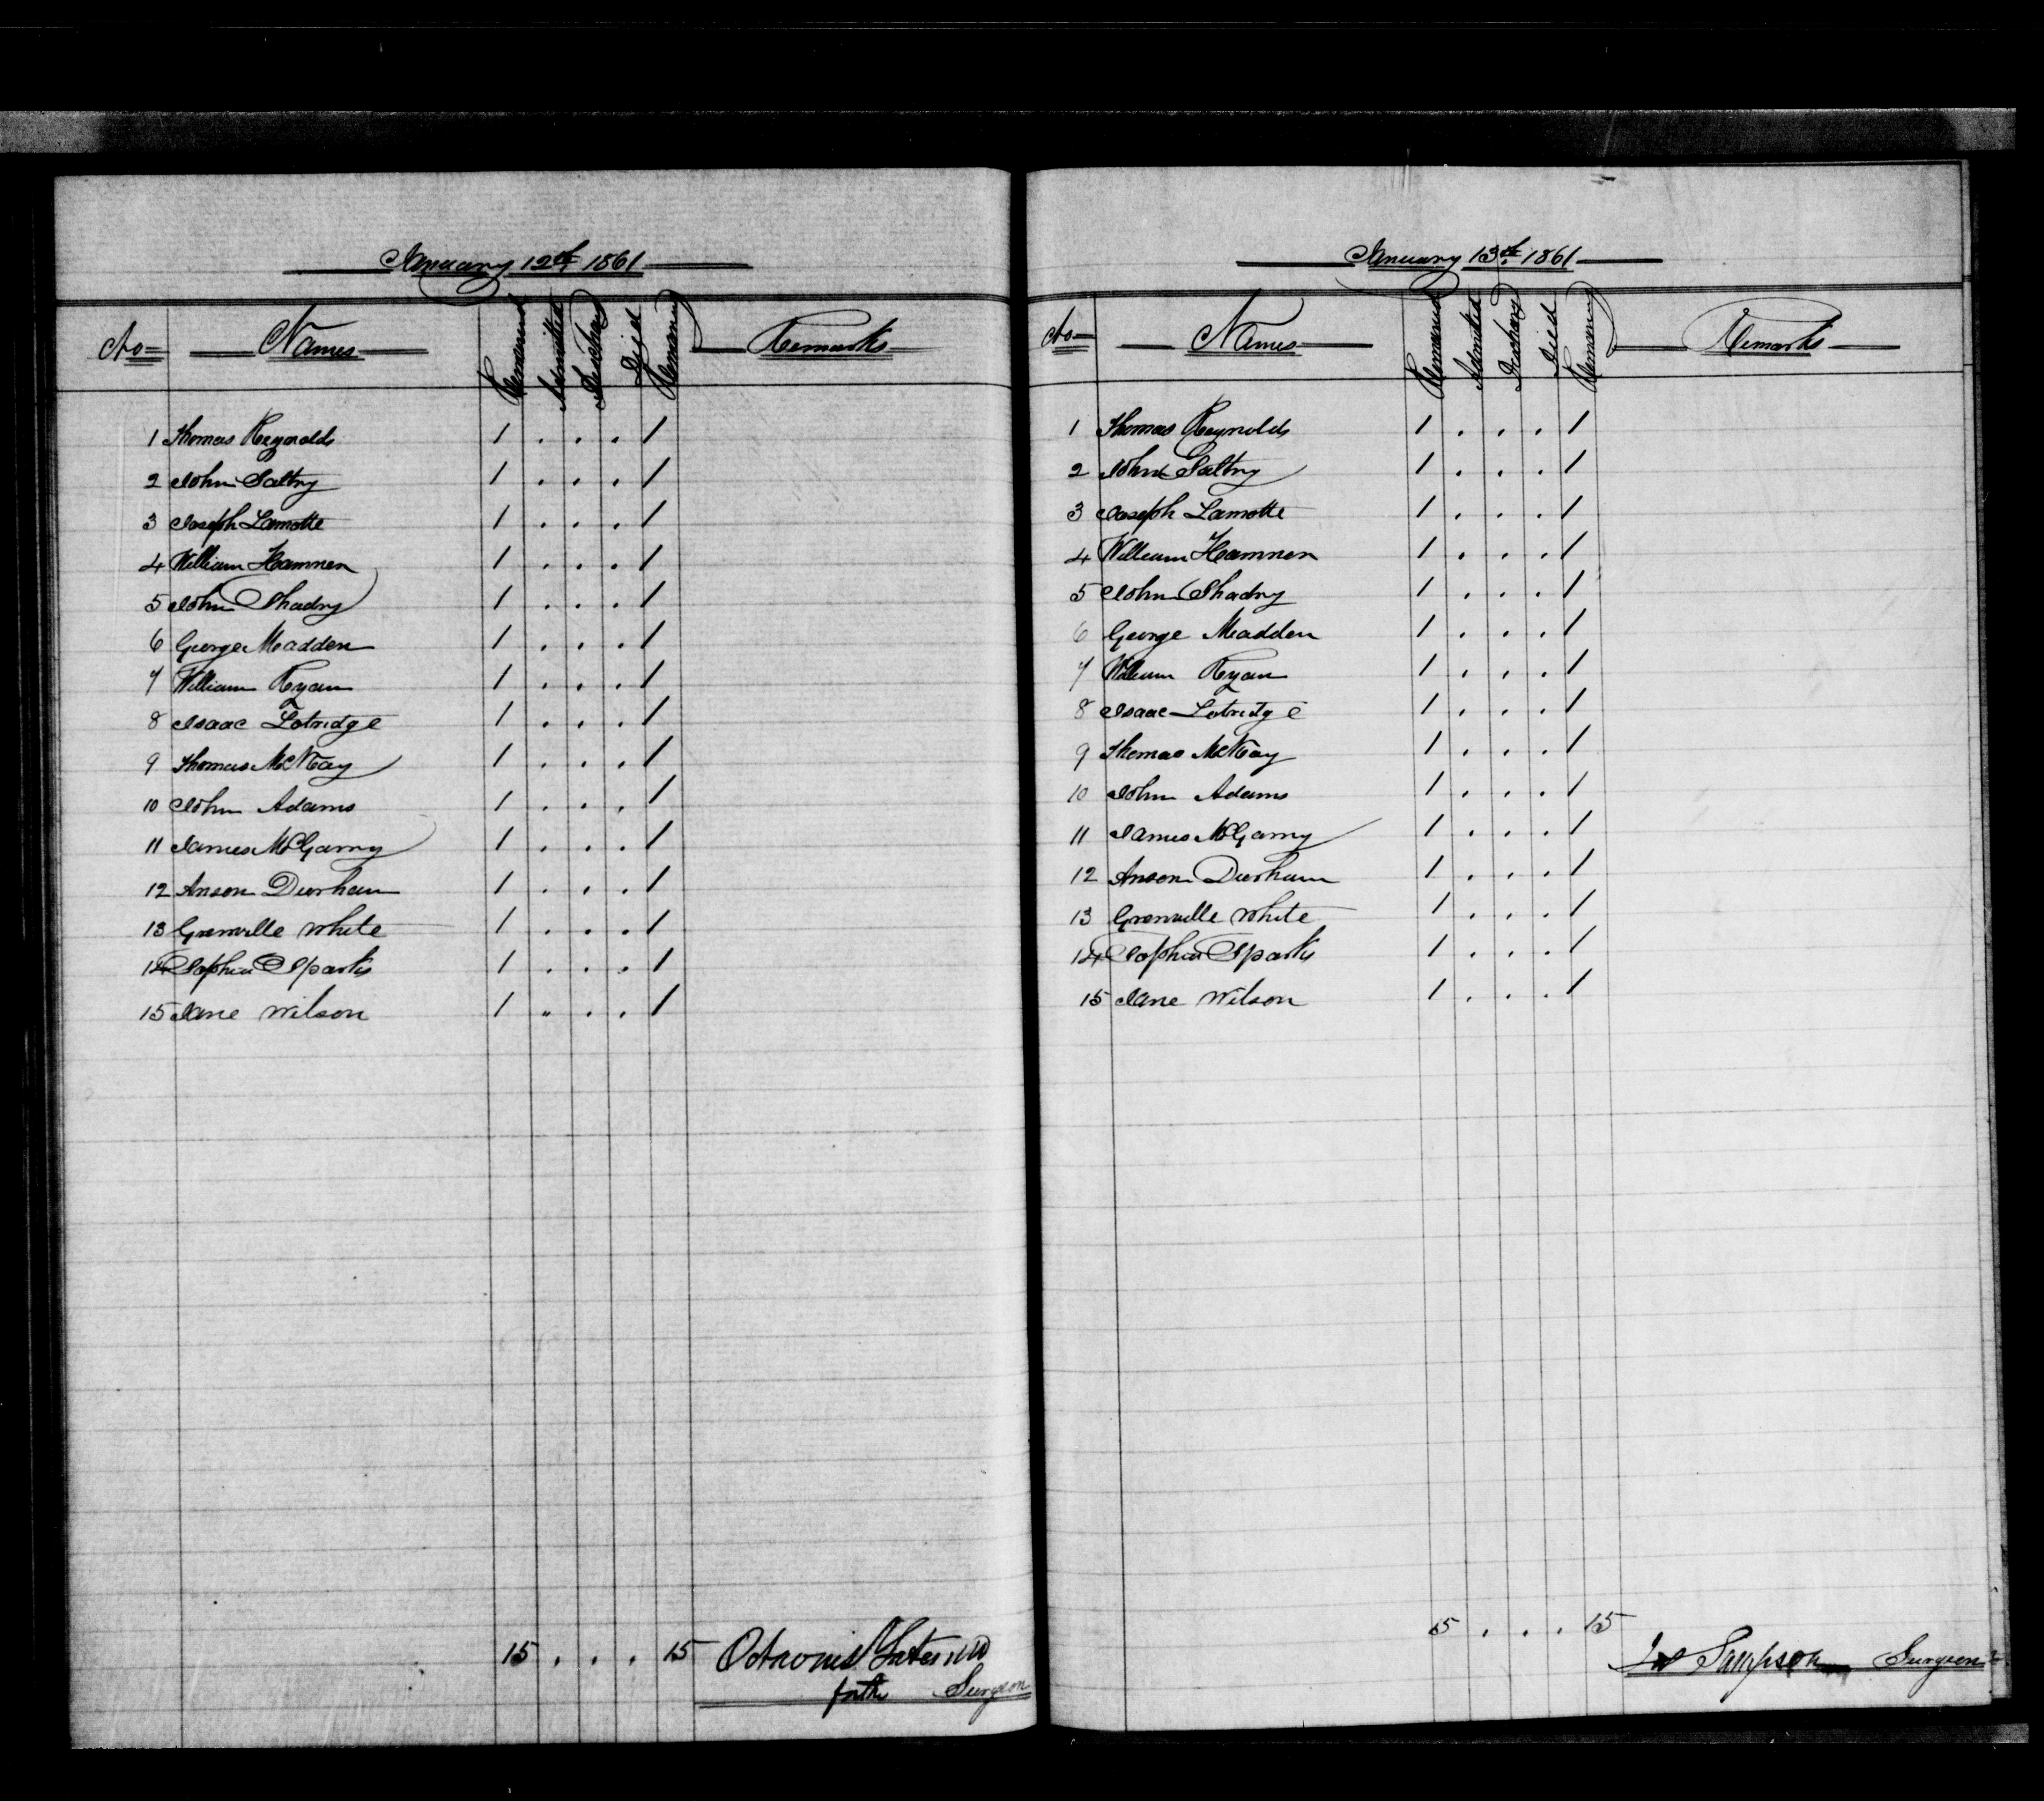 January 12th 1861
No Names Remained Admitted Discharg Died Remaining Remarks
1 Thomas Reynolds 1 . . . 1
2 John Saltry 1 . . . 1
3 Joseph Lamotte 1 . . . 1
4 William Hamnen 1 . . . 1
5 John Shadry 1 . . . 1
6 George Madden 1 . . . 1
7 William Ryan 1 . . . 1
8 Isaac Lotridge 1 . . . 1
9 Thomas McKay 1 . . . 1
10 John Adams 1 . . . 1
11 James McGarry 1 . . . 1
12 Anson Durham 1 . . . 1
13 Grenville White 1 . . . 1
14 Sophia Sparks 1 . . . 1
15 Jane Wilson 1 " . . 1
15 . . . 15
for the Surgeon
January 13th 1861
No Names Remained Admitted Discharg Died Remaining Remarks
1 Thomas Reynolds 1 . . . 1
2 John Saltry 1 . . . 1
3 Joseph Lamotte 1 . . . 1
4 William Hamnen 1 . . . 1
5 John Shadry 1 . . . 1
6 George Madden 1 . . . 1
7 William Ryan 1 . . . 1
8 Isaac Lotridge 1 . . . 1
9 Thomas McKay 1 . . . 1
10 John Adams 1 . . . 1
11 James McGarry 1 . . . 1
12 Anson Durham 1 . . . 1
13 Grenville White 1 . . . 1
14 Sophia Sparks 1 . . . 1
15 Jane Wilson 1 . . . 1
15 . . . 15
Sampson Surgeon